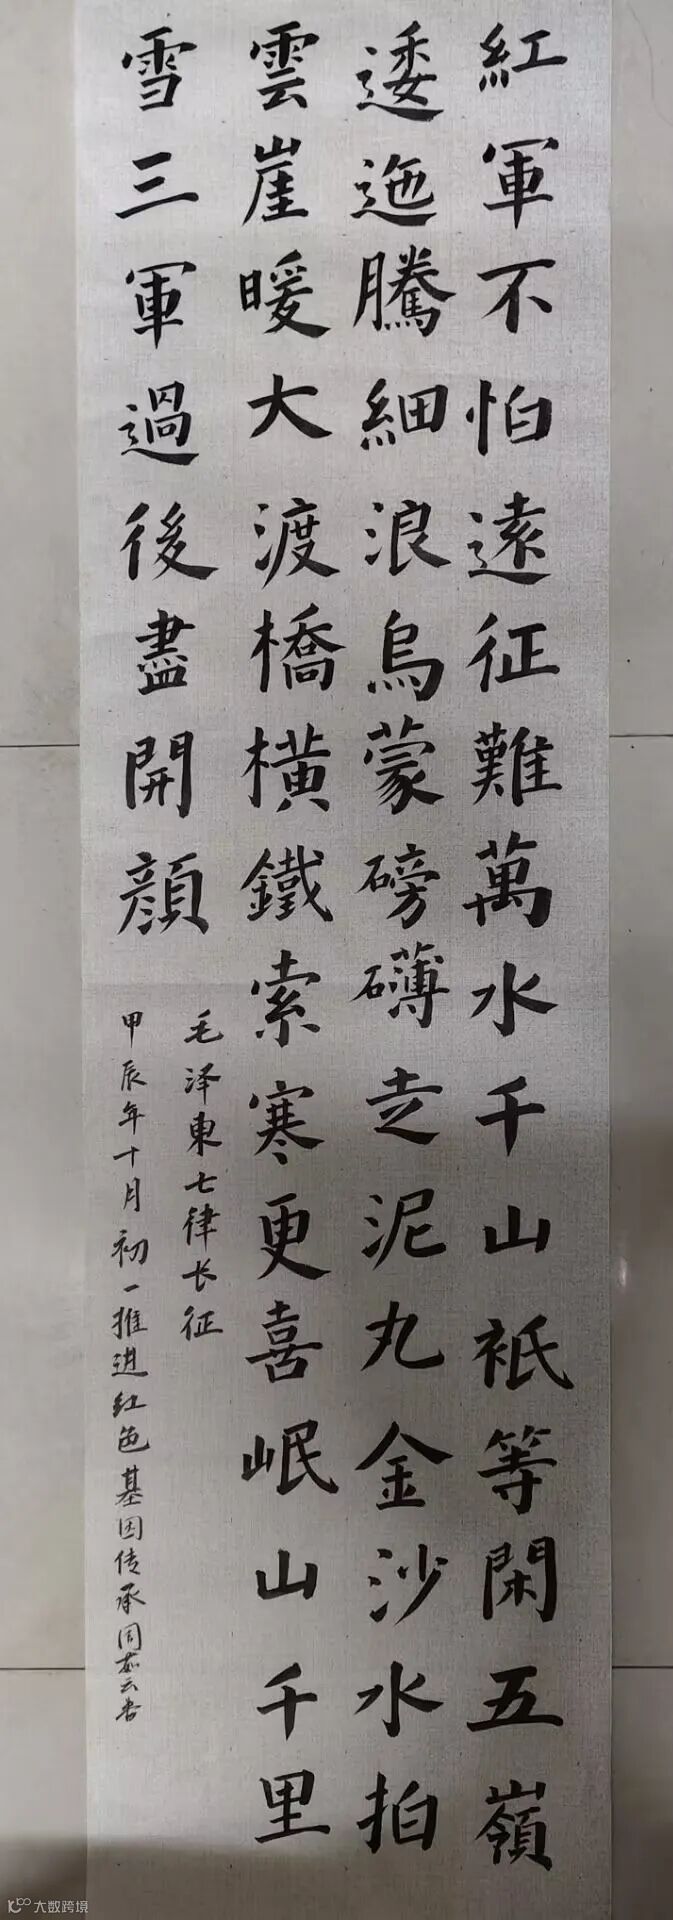 紅軍不怕遠征難萬水千山祇等閑五嶺
逶迤騰細浪烏蒙磅礴走泥丸金沙水拍
雲崖暖大渡橋橫鐵索寒更喜岷山千里
雪三軍過後盡開顔
毛泽東七律长征
甲辰年十月初一推进红色基因传承周云书
大数跨境